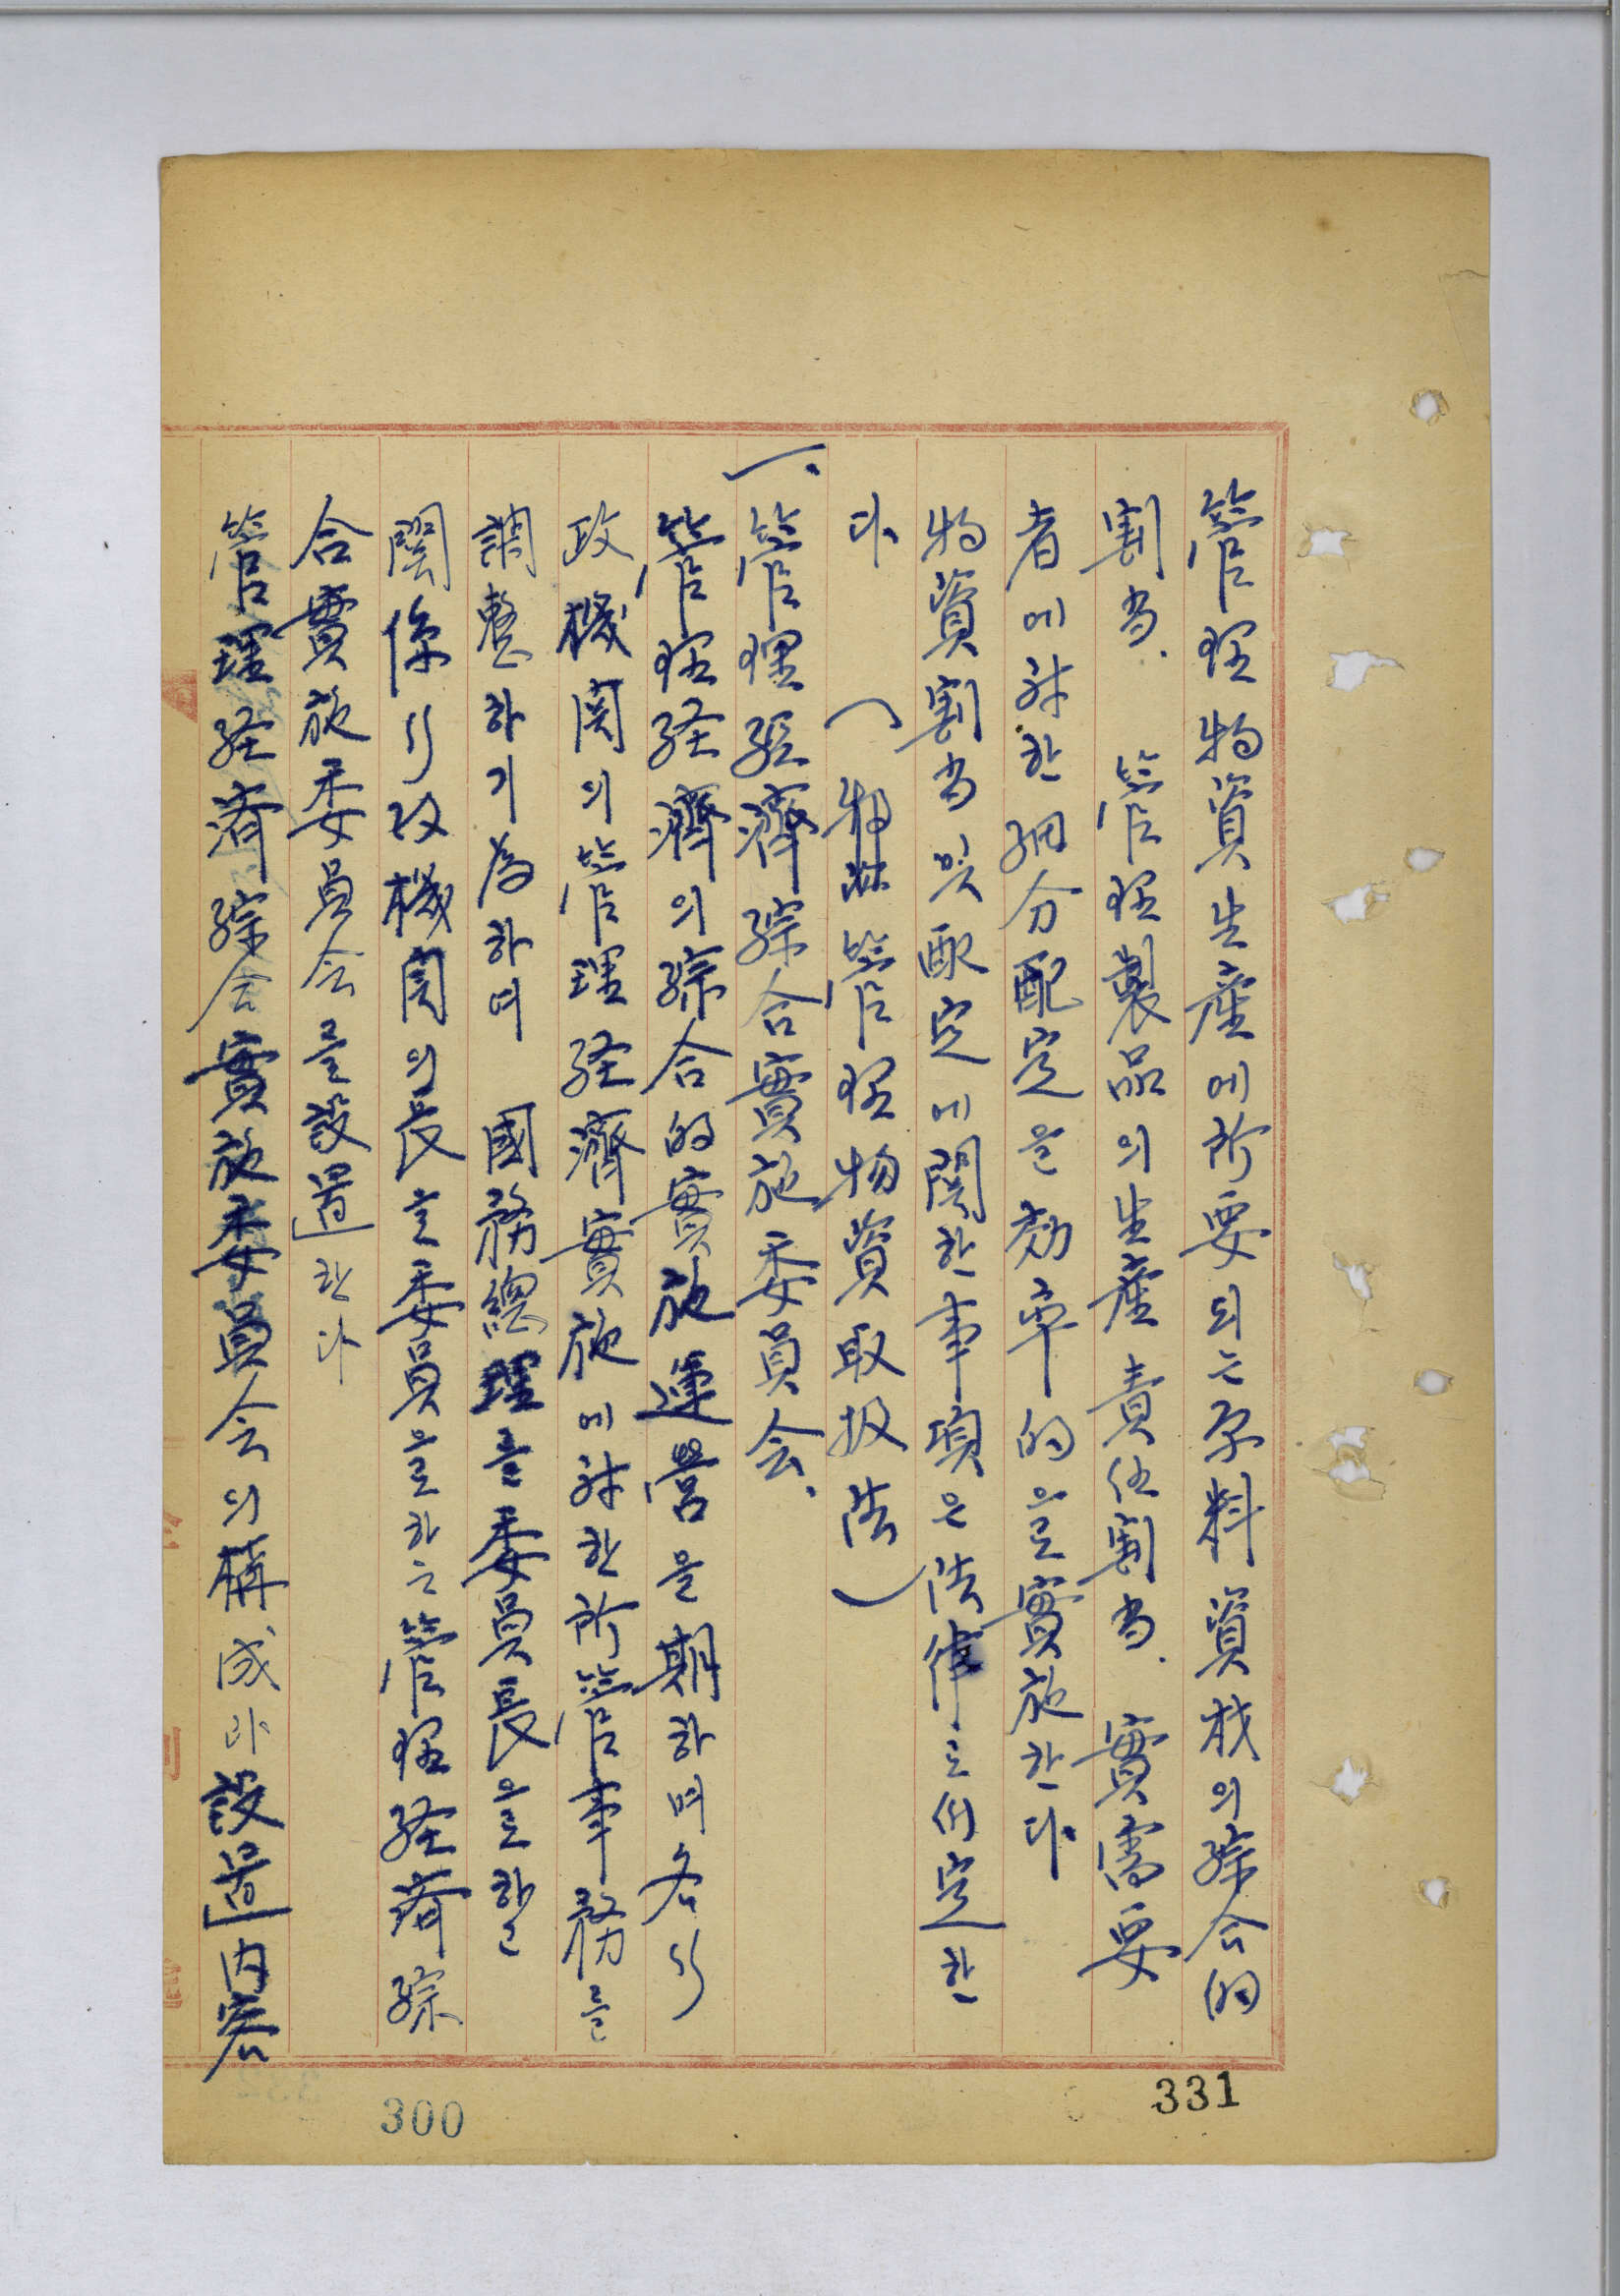 管理物資生産에所要되는原料資材의綜合的
割当、管理製品의生産責任割当、實需要
者에対한細分配定을効率的으로實施한다
物資割当及配定에関한事項은法律로仍定한
다 (特殊管理物資取扱法)
一、管理経濟綜合實施委員会、
管理経濟의綜合的實施運營을期하며各行
政機関의管理経濟實施에対한所管事務를
調整하기為하며 國務總理를委員長으로한
関係行政機関의長으로委員으로하는管理経済綜
合實施委員会를設置한다
管理経済綜合實施委員会의構成과設置内容
331
300